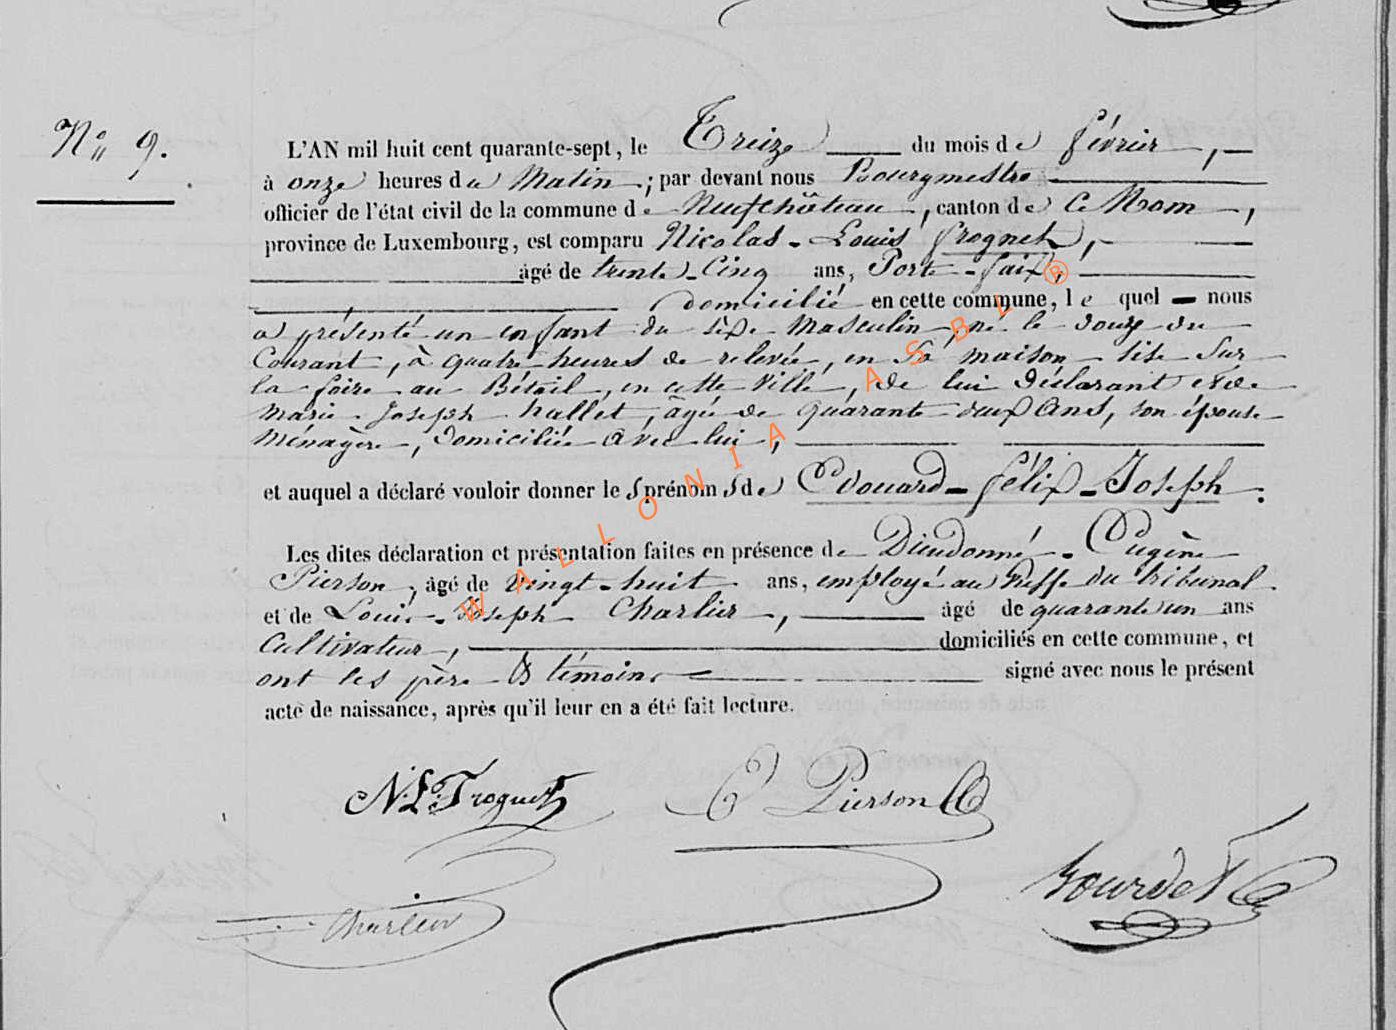 N° 9.
L'AN mil huit cent quarante-sept, le Treize du mois de février,
à onze heures du Matin ; par devant nous Bourgmestre
officier de l'état civil de la commune de Neufchâteau, canton de Ce Nom,
province de Luxembourg, est comparu Nicolas-Louis frognet,
âgé de trente-Cinq ans, Porte-faix,
domicilié en cette commune, le quel nous
a présenté un enfant du sèxe Masculin, né le douze du
Courant, à quatre heures de relevée, en Sa maison sise Sur
la foire au Bétail, en cette Ville, de lui déclarant et de
Marie-Joseph hallet, âgée de quarante deux Ans, son épouse
Ménagère, domiciliée avec lui,
et auquel a déclaré vouloir donner les prénoms de Edouard-félix-Joseph.
Les dites déclaration et présentation faites en présence de Dieudonné-Eugène
Pierson, âgé de vingt-huit ans, employé au Greffe du tribunal
et de Louis-Joseph Charlier, âgé de quarante un ans
Cultivateur, domiciliés en cette commune, et
ont les père & témoins signé avec nous le présent
acte de naissance, après qu'il leur en a été fait lecture.
N. L. Frognet E Pierson
Charlier Bourdet
WALLONIA ASBL ®